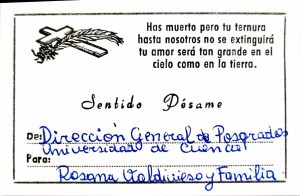 Has muerto pero tu ternura
hasta nosotros no se extinguirá
tu amor será tan grande en el
cielo como en la tierra.
Sentido Pésame
De: Dirección General de Posgrados
Universidad de Cuenca
Para:
Rosana Valdivieso y Familia